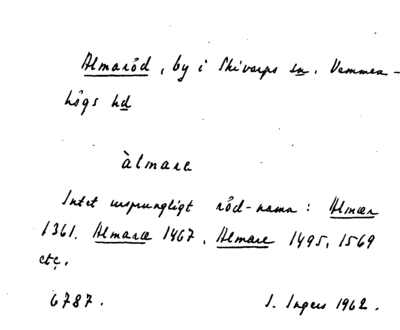 Almaröd, by i Skivarps sn. Vemmen-
högs hd
àlmare
Intet ursprungligt röd-namn: Almær
1361. Almaræ 1467, Almare 1495, 1569
etc.
6787. I. Ingers 1962.